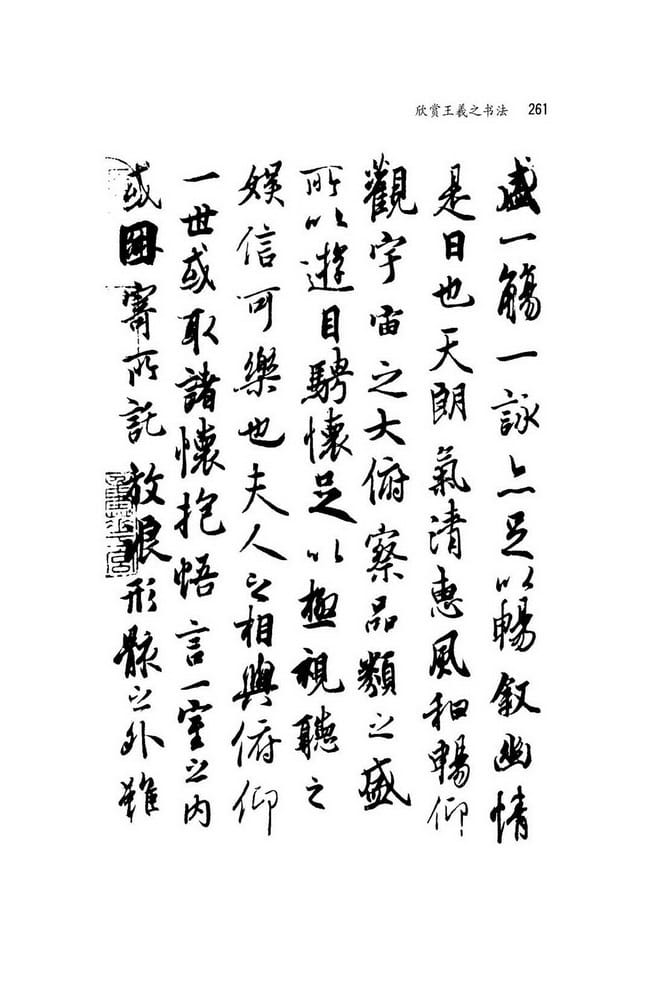 欣赏王羲之书法 261
盛一觴一詠亦足以暢敘幽情
是日也天朗氣清惠風和暢仰
觀宇宙之大俯察品類之盛
所以遊目騁懷足以極視聽之
娛信可樂也夫人之相與俯仰
一世或取諸懷抱悟言一室之內
或因寄所託放浪形骸之外雖